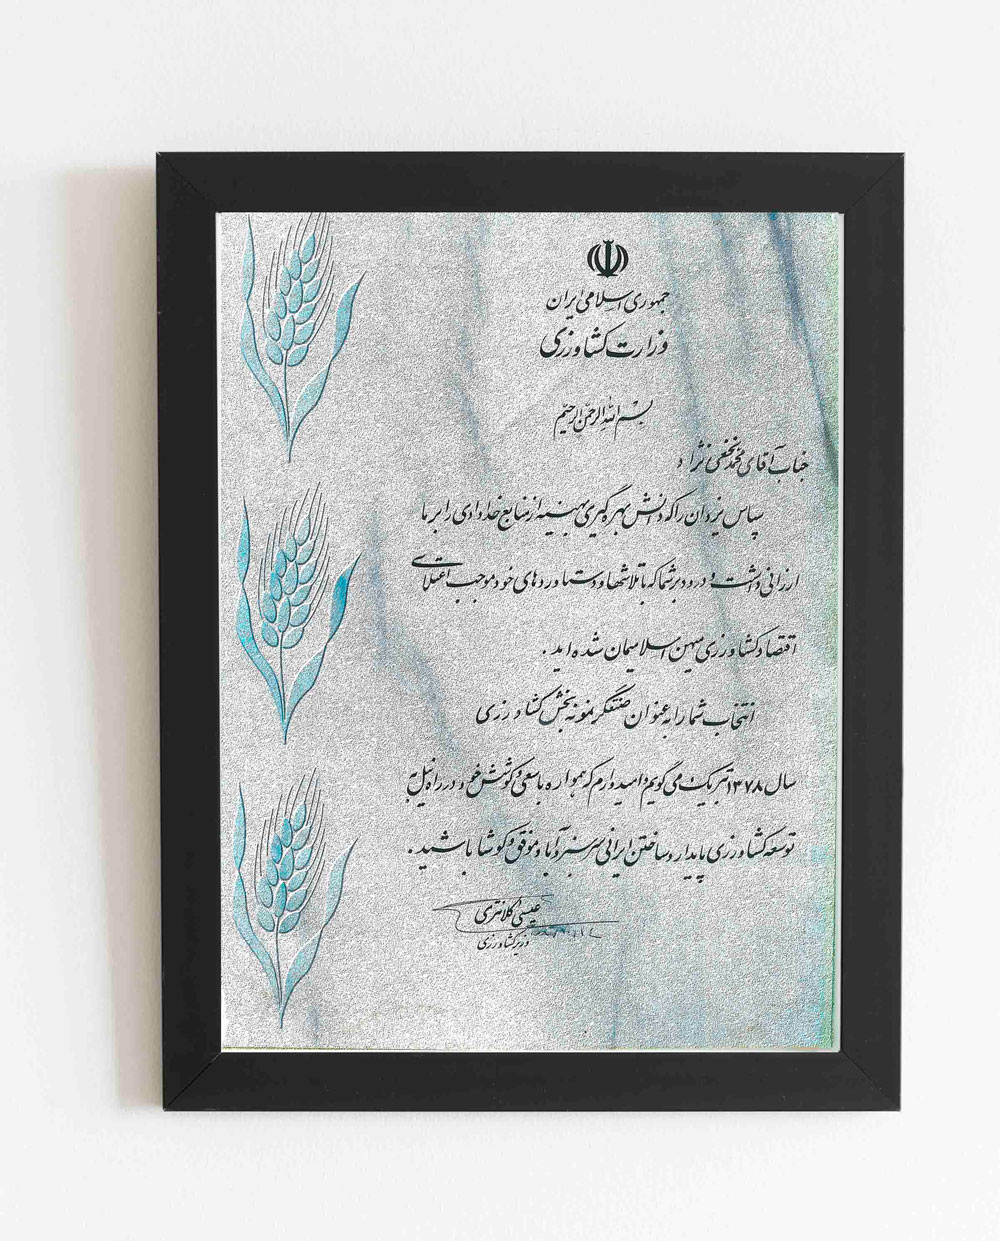 جمهوری اسلامی ایران
وزارت کشاورزی
بسم الله الرحمن الرحیم
جناب آقای محمد نجفی نژاد
سپاس یزدان را که دانش بهره گیری بهینه از منابع خدادادی را بر ما
ارزانی داشت و درود بر شما که با تلاشها و دستاوردهای خود موجب اعتلای
اقتصاد کشاورزی میهن اسلامیمان شده اید .
انتخاب شما را به عنوان صنعتگر نمونه بخش کشاورزی
سال ۱۳۷۸ تبریک می گویم و امیدوارم که همواره با سعی و کوشش خود در راه نیل به
توسعه کشاورزی پایدار و ساختن ایرانی سرسبز و آباد موفق و کوشا باشید .
عیسی کلانتری
وزیر کشاورزی